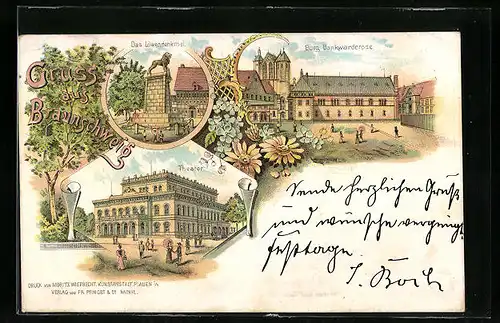 Gruss
aus
Braunschweig
Das Löwendenkmal.
Burg Dankwarderode
Theater
Sende herzlichen Gruß
und wünsche vergnügt.
Festtage.
DRUCK VON MORITZ WIEPRECHT, KUNSTANSTALT, PLAUEN i/V.
VERLAG VON FR. PFINGST &